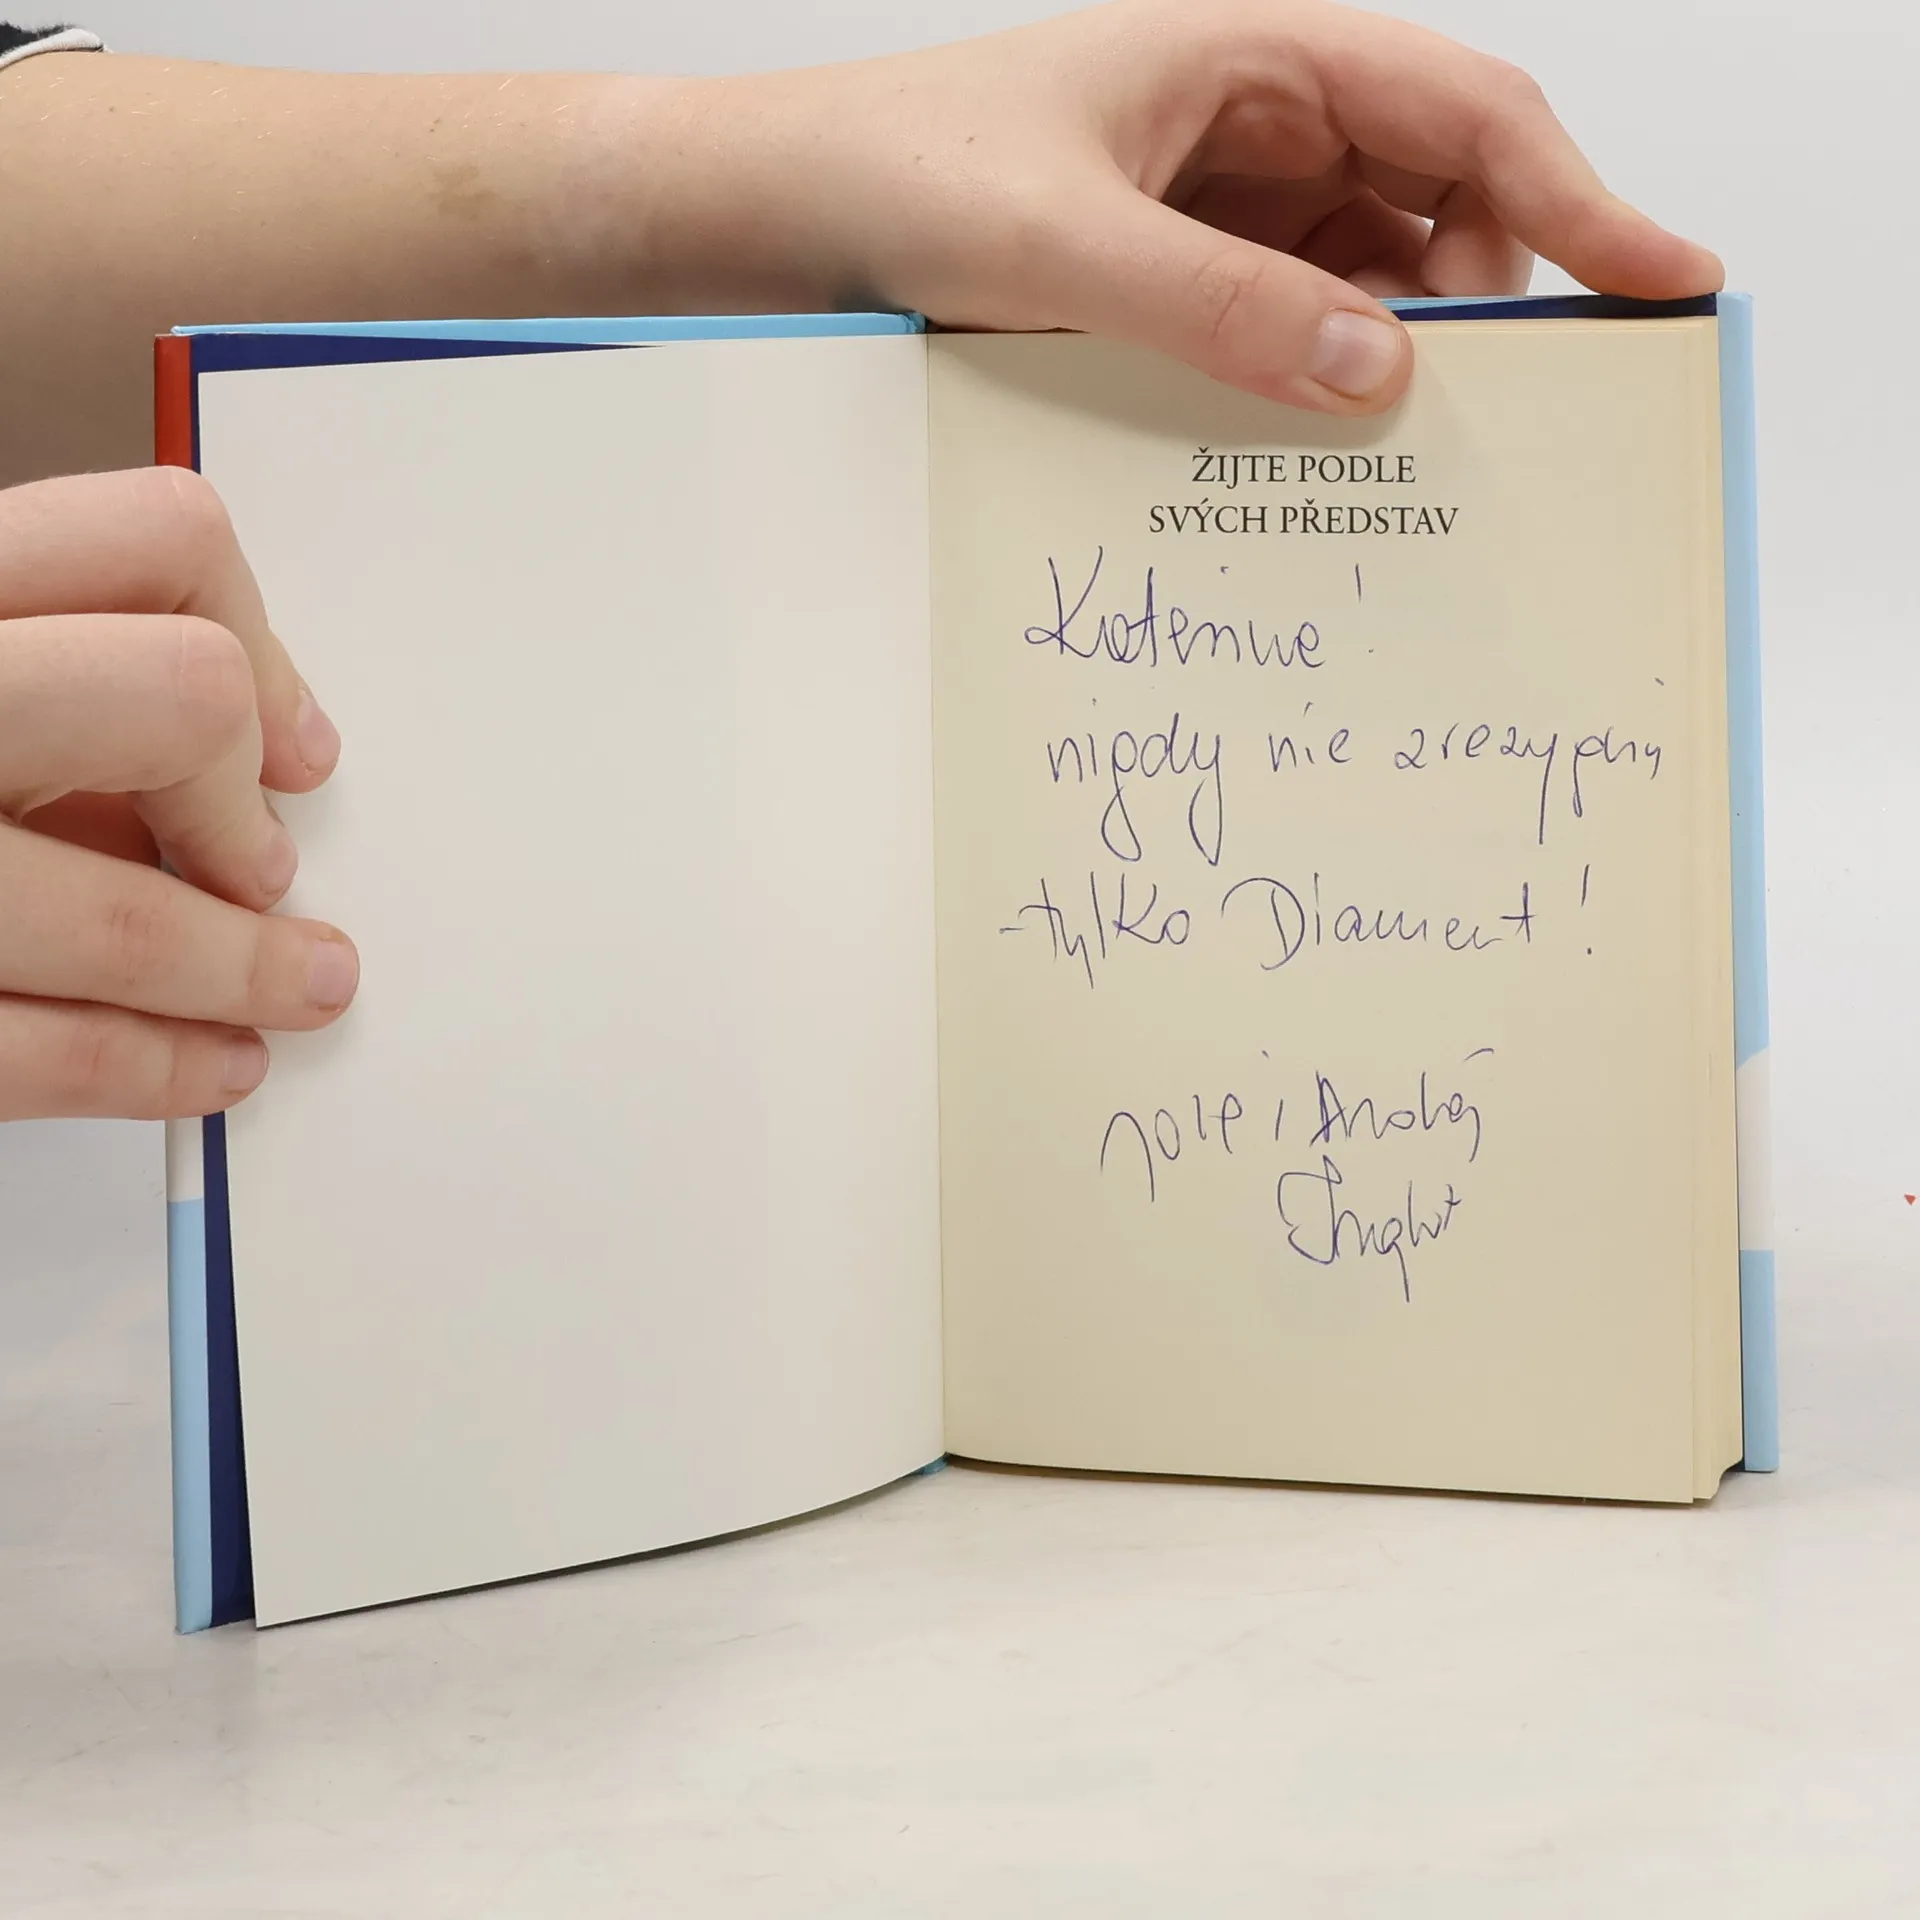 ŽIJTE PODLE
SVÝCH PŘEDSTAV
Katerine!
nigdy nie zrezygnuj
-tylko Diament!
i Andrzej